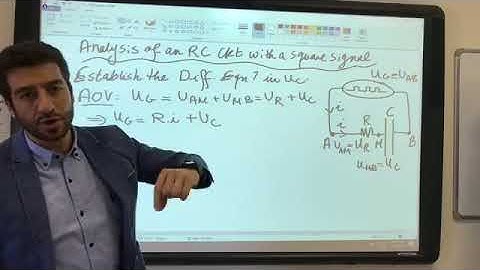 Analysis of an RC Ckt with a square signal
Establish the Diff. Eqn? in uc
AOV: uG = UAM + UMB = UR + UC
⇒ uG = R.i + UC
uG = UAB
i
i
R
C
A
UAM = UR
M
B
UMB = UC